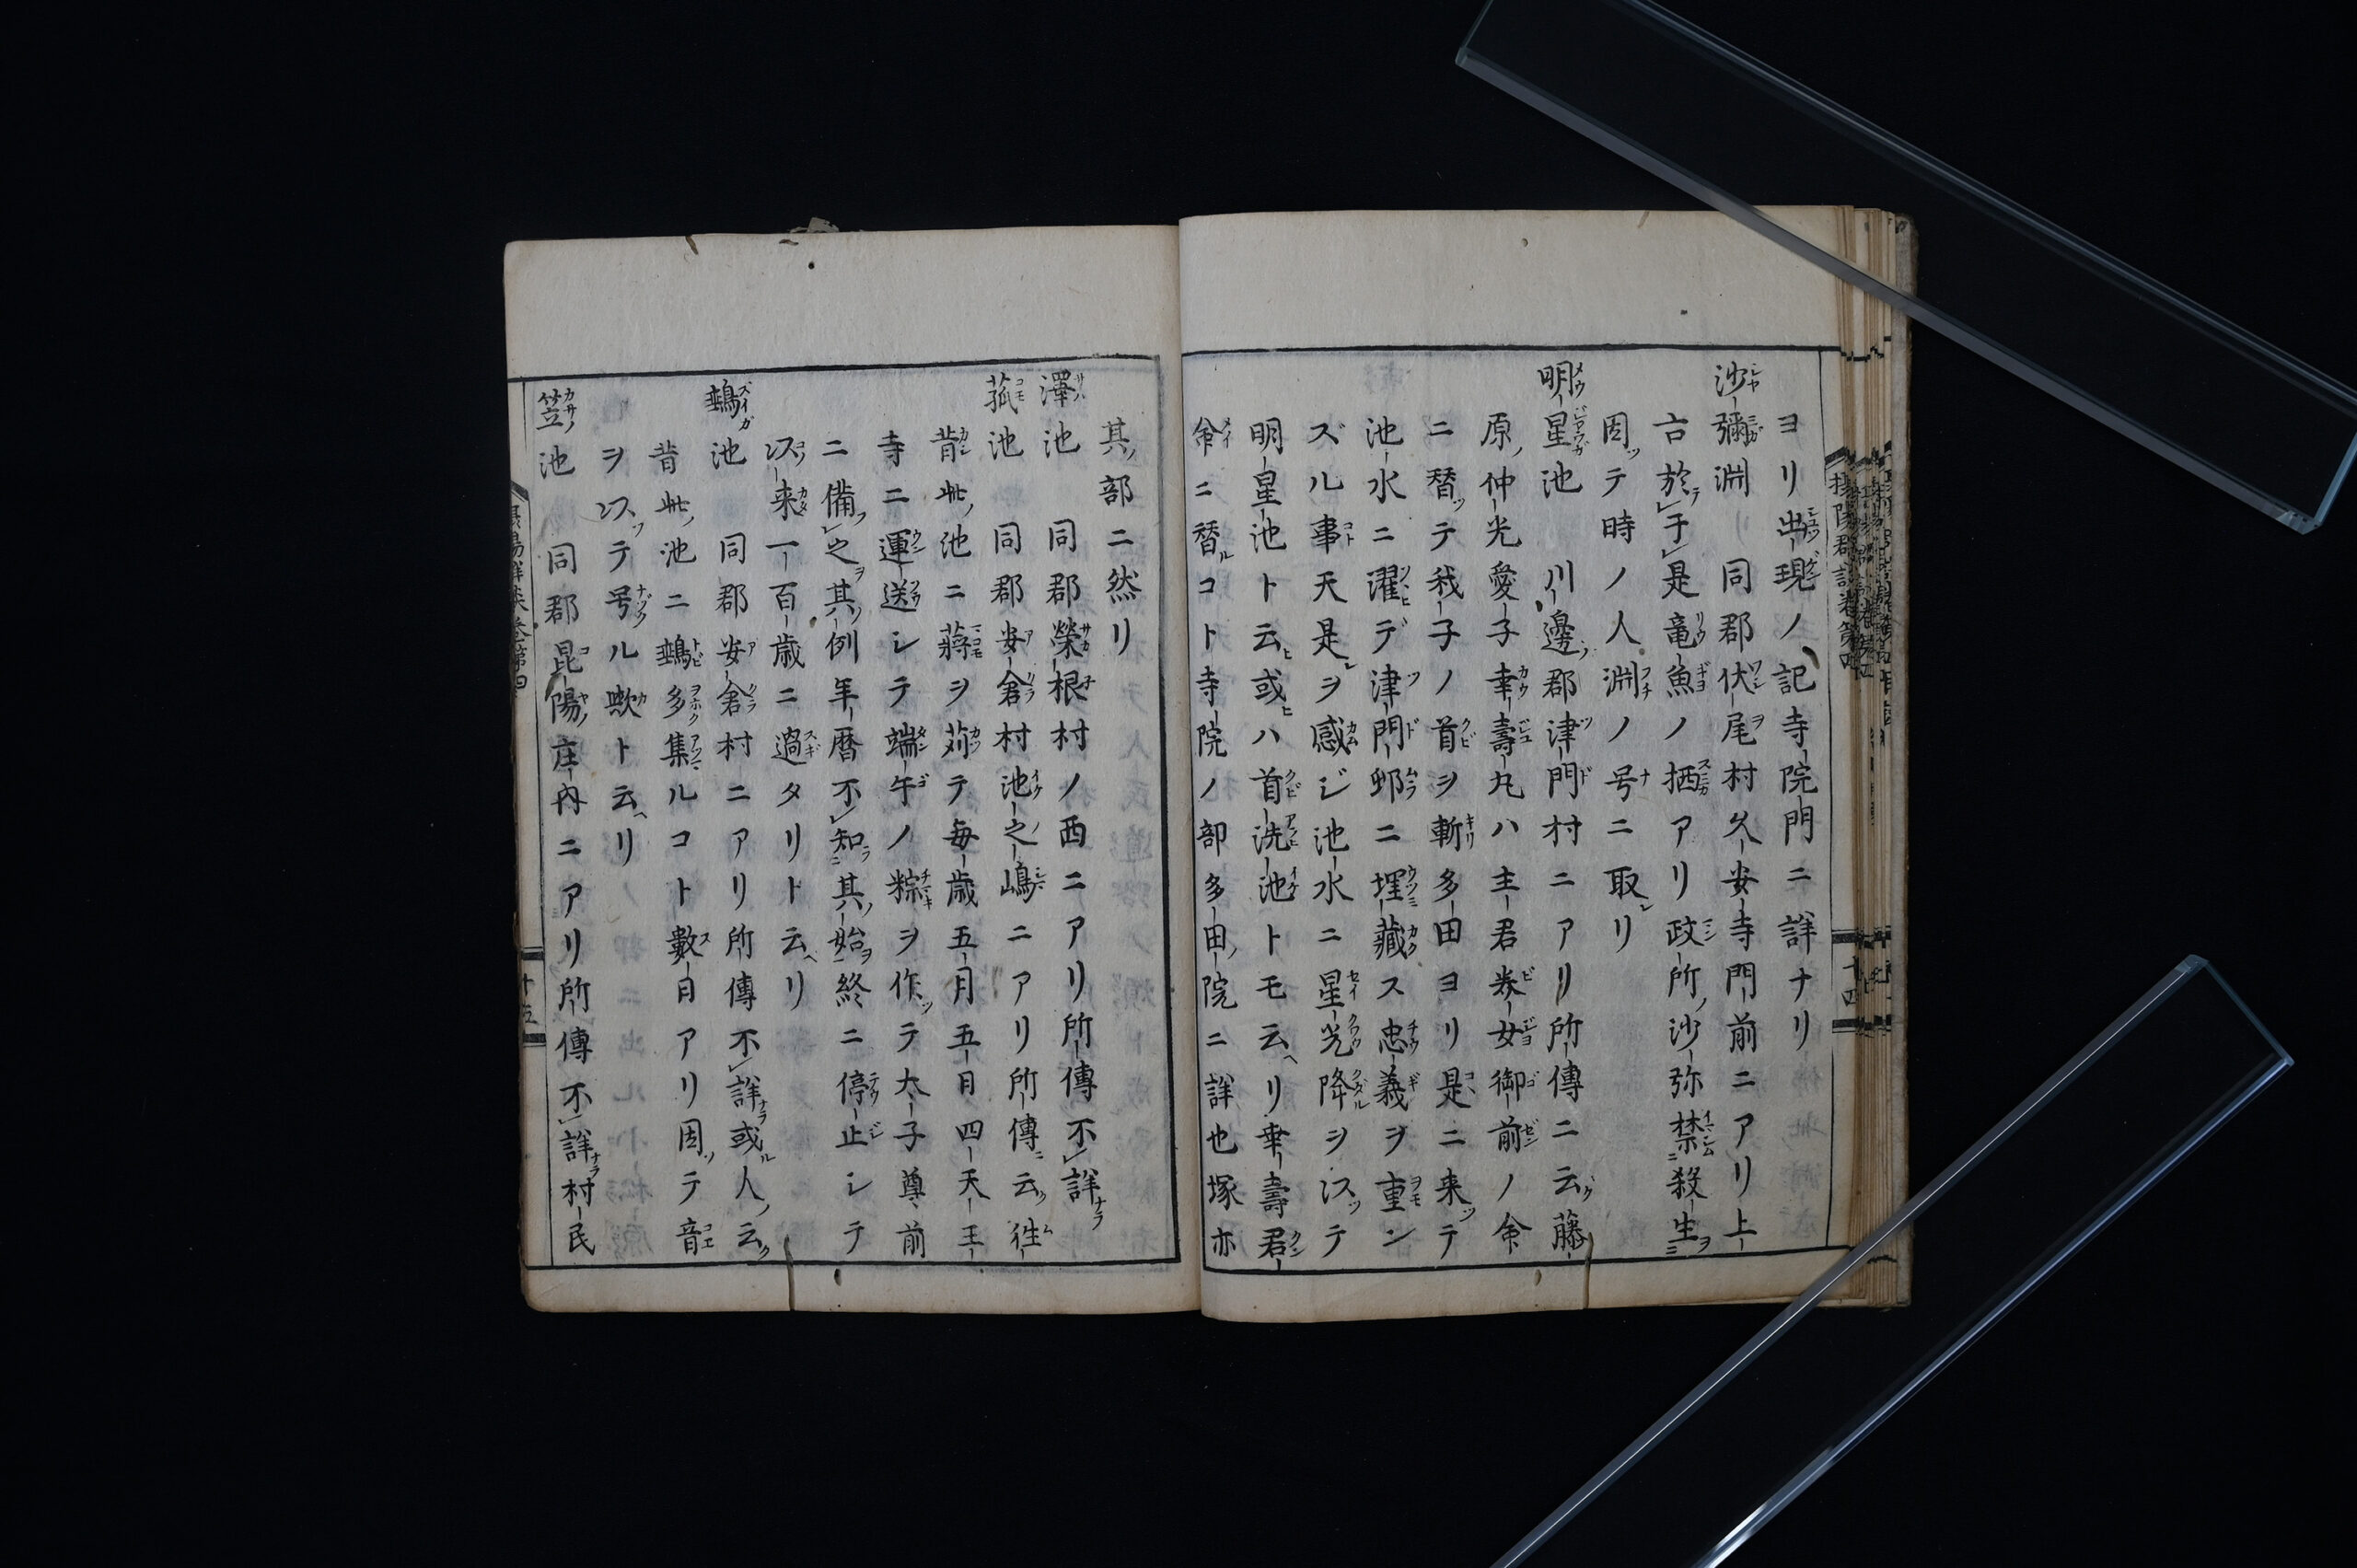 ヨリ出現ノ記寺院門ニ詳ナリ
沙彌淵 同郡伏尾村久安寺門前ニアリ上
古於于是竜魚ノ栖アリ政所沙弥禁殺生
因テ時ノ人淵ノ号ニ取リ
明星池 川邊郡津門村ニアリ所傳ニ云藤
原仲光愛子幸壽丸ハ主君美女御前ノ命
ニ替テ我子ノ首ヲ斬多田ヨリ是ニ来テ
池水ニ濯デ津門邨ニ埋藏ス忠義ヲ重ン
ズル事天是ヲ感ジ池水ニ星光降ヲ以テ
明星池ト云或ハ首洗池トモ云リ幸壽君
命ニ替ルコト寺院ノ部多田院ニ詳也塚亦
其部ニ然リ
澤池 同郡榮根村ノ西ニアリ所傳不詳
菰池 同郡安倉村池之嶋ニアリ所傳云徃
昔此池ニ蒋ヲ苅テ毎歳五月五日四天王
寺ニ運送シテ端午ノ粽ヲ作テ太子尊前
ニ備之其例年暦不知其始終ニ停止シテ
以来一百歳ニ過タリト云リ
鵄池 同郡安倉村ニアリ所傳不詳或人云
昔此池ニ鵄多集ルコト數日アリ因テ音
ヲ以テ号ル歟ト云リ
笠池 同郡昆陽庄内ニアリ所傳不詳村民
攝陽群談巻第四
十四
十五